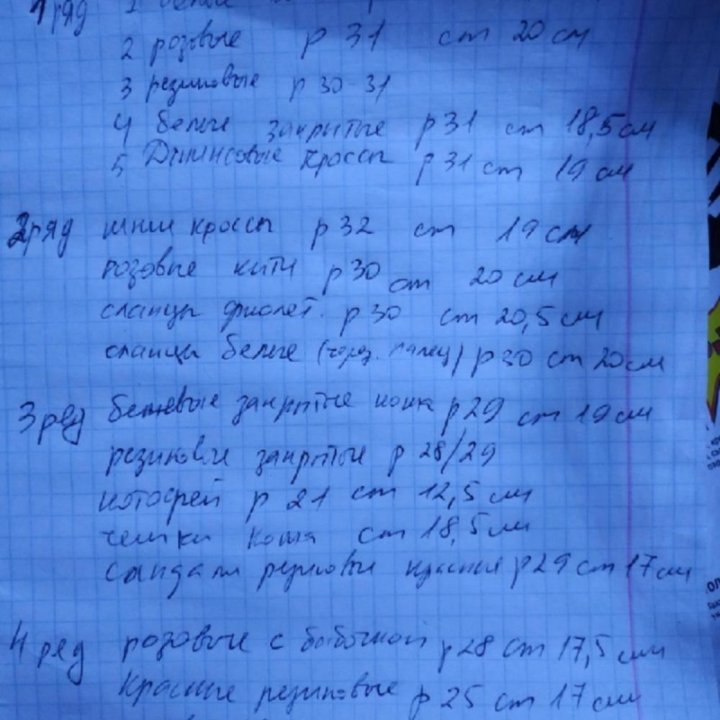 1 ряд 1
2 розовые р 31 ст 20 см
3 резиновые р 30-31
4 белые закрытые р 31 ст 18,5 см
5 Джинсовые кроссы р 31 ст 19 см
2 ряд кроссы р 32 ст 19 см
розовые кити р 30 ст 20 см
сланцы фиолет. р 30 ст 20,5 см
сланцы белые (через палец) р 30 ст 20 см
3 ряд бежевые закрытые кожа р 29 ст 19 см
резиновые закрытые р 28/29
котофей р 21 ст 12,5 см
чешки кожа ст 18,5 см
сандали резиновые красные р 29 ст 17 см
4 ряд розовые с бабочкой р 28 ст 17,5 см
красные резиновые р 25 ст 17 см